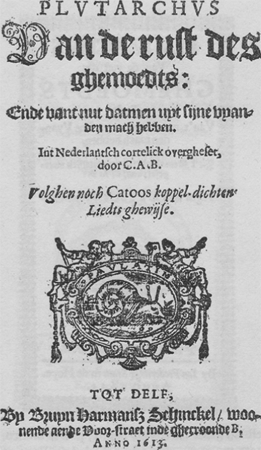 PLVTARCHVS
Van de rust des
ghemoedts:
Ende vant nut datmen uyt sijne vyan-
den mach hebben.
Int Nederlantsch cortelick overgheset,
door C.A.B.
Volghen noch Catoos koppel-dichten-
Liedts ghewijse.
PAVLLATIM
TOT DELF,
By Bruyn Harmansz Schinckel/ woo-
nende aende Voor-straet inde ghecroonde B,
ANNO 1613.